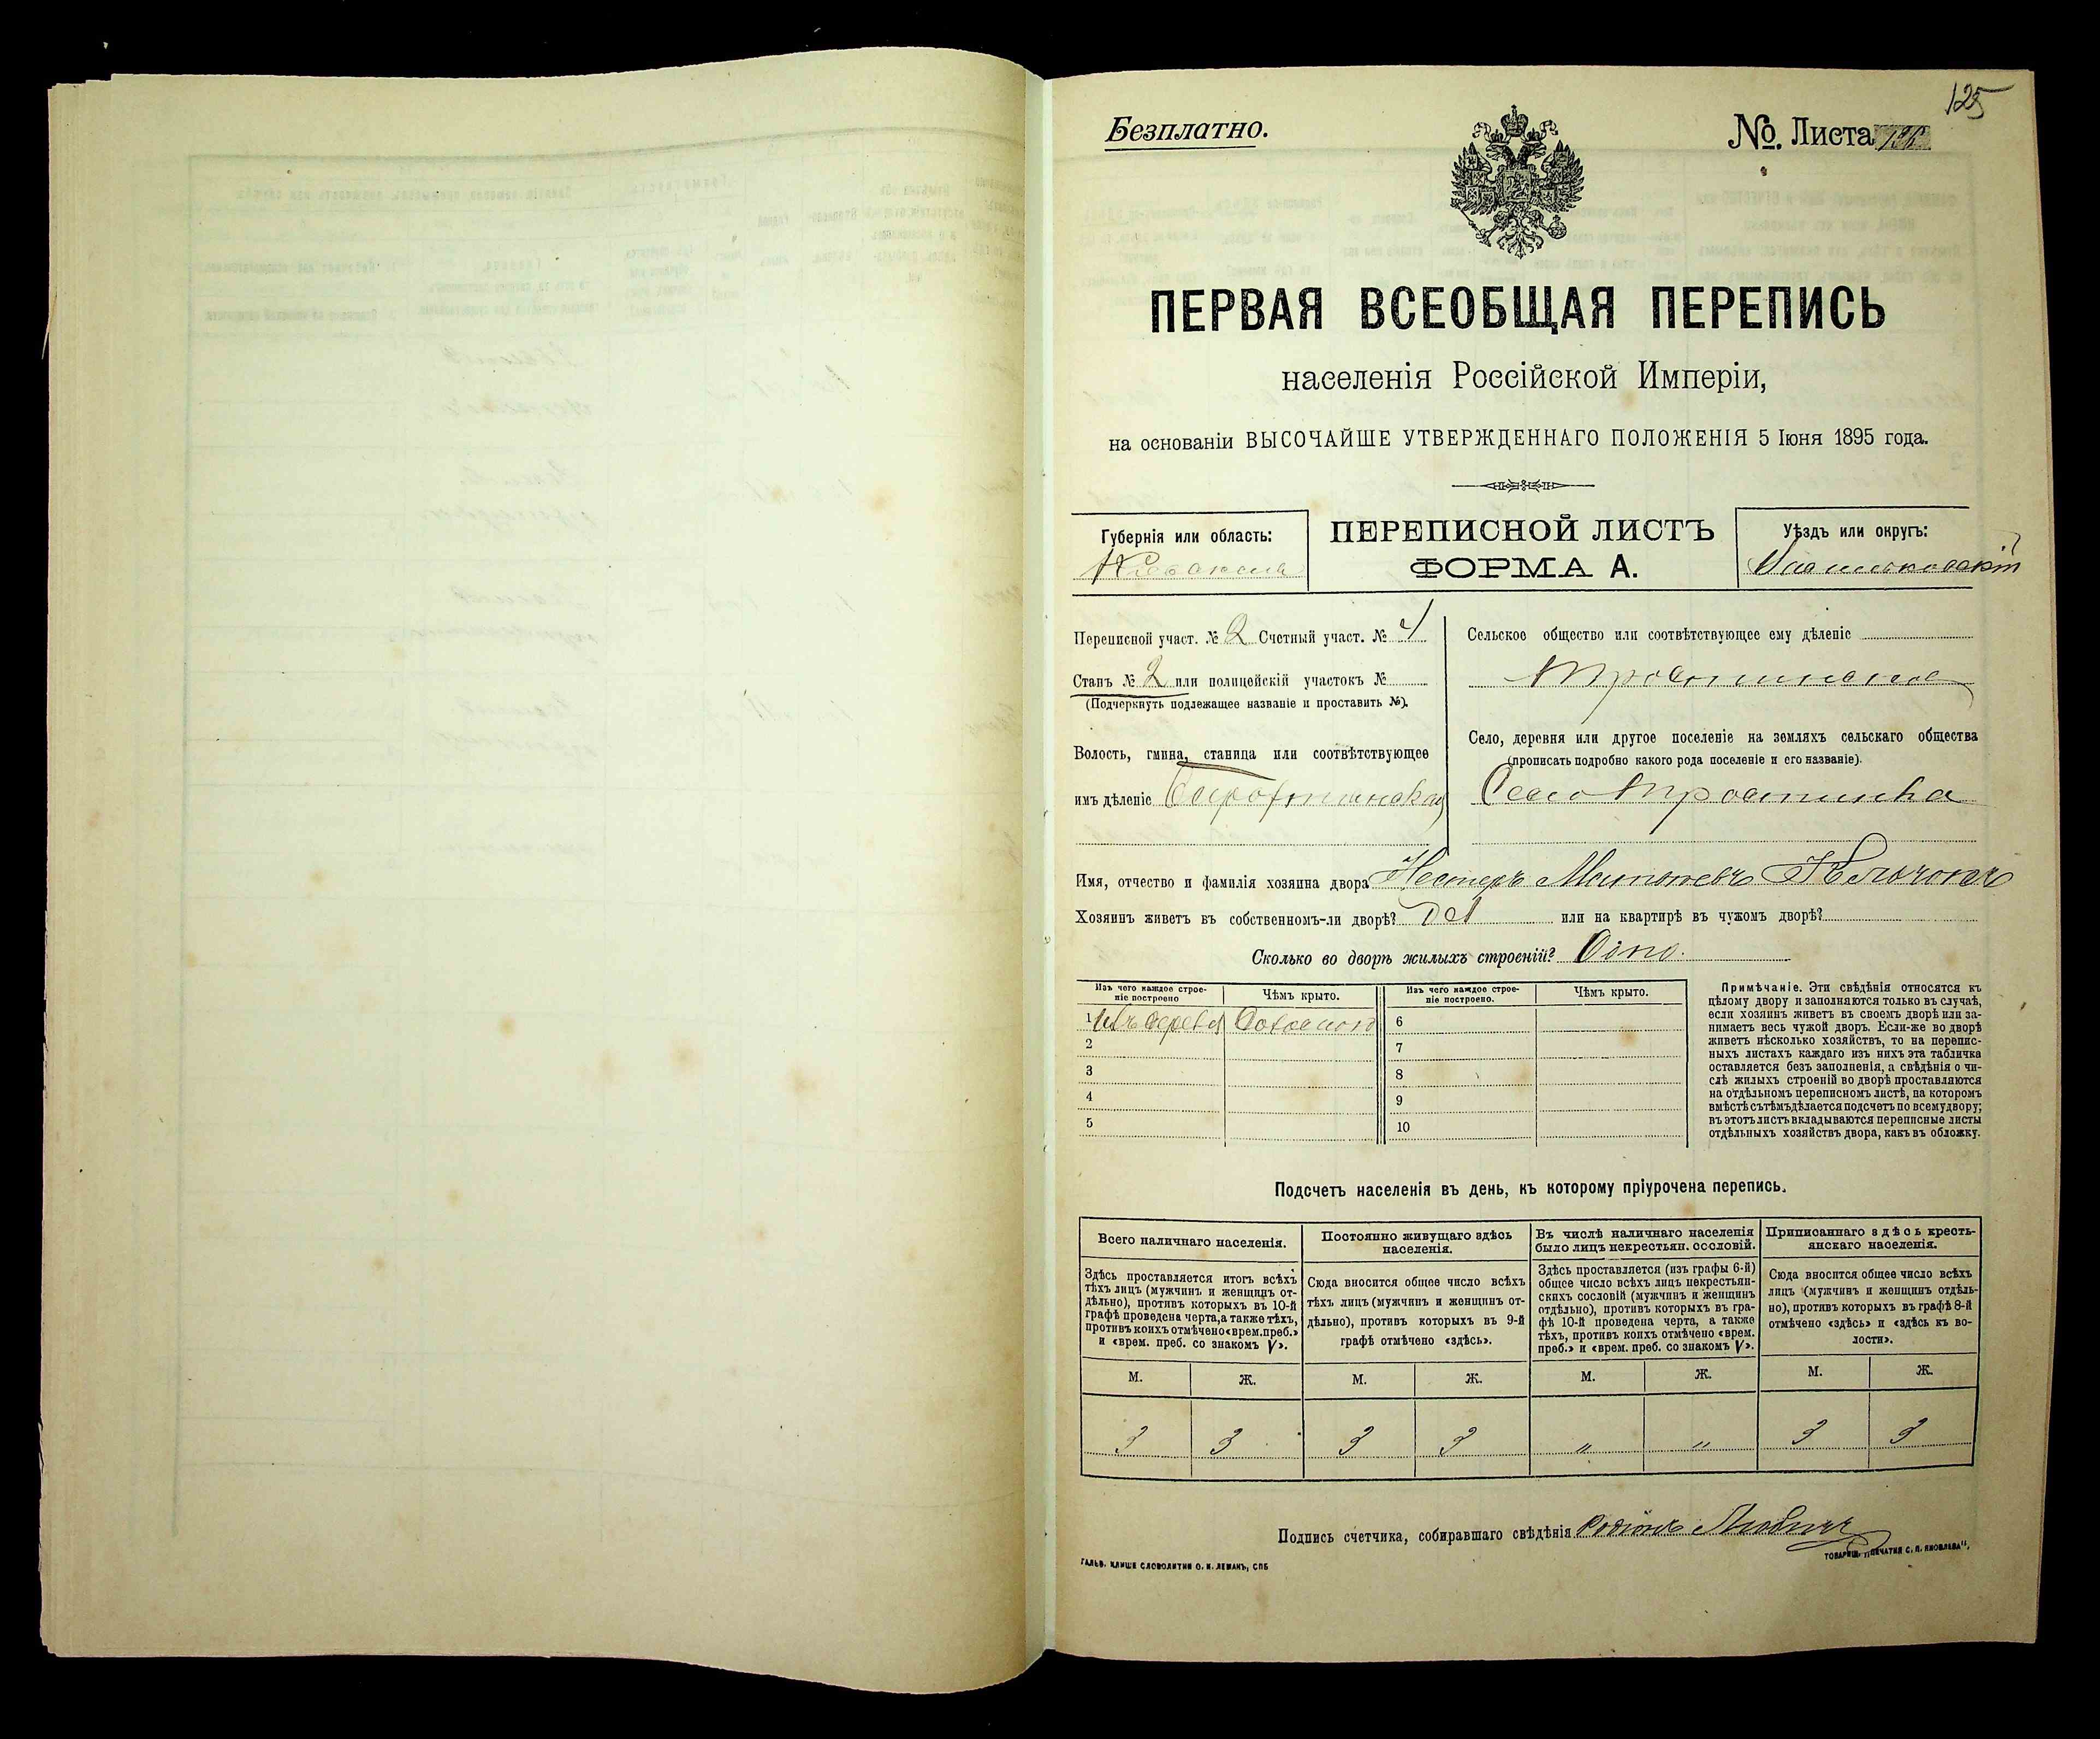 125
Безплатно.
№. Листа 126
ПЕРВАЯ ВСЕОБЩАЯ ПЕРЕПИСЬ
населенія Россійской Имперіи,
на основаніи ВЫСОЧАЙШЕ УТВЕРЖДЕННАГО ПОЛОЖЕНІЯ 5 Іюня 1895 года.
Губернія или область:
Кіевская
ПЕРЕПИСНОЙ ЛИСТЪ
ФОРМА А.
Уѣздъ или округъ:
Васильковскій
Переписной участ. № 2 Счетный участ. № 4
Станъ № 2 или полицейскій участокъ №
(Подчеркнуть подлежащее названіе и проставить №).
Волость, гмина, станица или соотвѣтствующее
имъ дѣленіе
Сельское общество или соотвѣтствующее ему дѣленіе
Тростинское
Село, деревня или другое поселеніе на земляхъ сельскаго общества
(прописать подробно какого рода поселеніе и его названіе).
Село Тростинка
Имя, отчество и фамилія хозяина двора Нестеръ
Хозяинъ живетъ въ собственномъ-ли дворѣ? Да или на квартирѣ въ чужомъ дворѣ?
Сколько во дворѣ жилыхъ строеній? Одно.
Изъ чего каждое строеніе построено
Чѣмъ крыто.
Изъ чего каждое строеніе построено.
Чѣмъ крыто.
1 Изъ дерева Соломою 6
2 7
3 8
4 9
5 10
Примѣчаніе. Эти свѣдѣнія относятся къ
цѣлому двору и заполняются только въ случаѣ,
если хозяинъ живетъ въ своемъ дворѣ или за-
нимаетъ весь чужой дворъ. Если-же во дворѣ
живетъ нѣсколько хозяйствъ, то на перепис-
ныхъ листахъ каждаго изъ нихъ эта табличка
оставляется безъ заполненія, а свѣдѣнія о чи-
слѣ жилыхъ строеній во дворѣ проставляются
на отдѣльномъ переписномъ листѣ, на которомъ
вмѣстѣ съ тѣмъ дѣлается подсчетъ по всему двору;
въ этотъ листъ вкладываются переписные листы
отдѣльныхъ хозяйствъ двора, какъ въ обложку.
Подсчетъ населенія въ день, къ которому пріурочена перепись.
Всего наличнаго населенія.
Постоянно живущаго здѣсь
населенія.
Въ числѣ наличнаго населенія
было лицъ некрестьян. сословій.
Приписаннаго здѣсь кресть-
янскаго населенія.
Здѣсь проставляется итогъ всѣхъ
тѣхъ лицъ (мужчинъ и женщинъ от-
дѣльно), противъ которыхъ въ 10-й
графѣ проведена черта, а также тѣхъ,
противъ коихъ отмѣчено «врем. преб.»
и «врем. преб. со знакомъ V».
Сюда вносится общее число всѣхъ
тѣхъ лицъ (мужчинъ и женщинъ от-
дѣльно), противъ которыхъ въ 9-й
графѣ отмѣчено «здѣсь».
Здѣсь проставляется (изъ графы 6-й)
общее число всѣхъ лицъ некрестьян-
скихъ сословій (мужчинъ и женщинъ
отдѣльно), противъ которыхъ въ гра-
фѣ 10-й проведена черта, а также
тѣхъ, противъ коихъ отмѣчено «врем.
преб.» и «врем. преб. со знакомъ V».
Сюда вносится общее число всѣхъ
лицъ (мужчинъ и женщинъ отдѣль-
но), противъ которыхъ въ графѣ 8-й
отмѣчено «здѣсь» и «здѣсь къ во-
лости».
М. Ж. М. Ж. М. Ж. М. Ж.
3 3 3 3 " " 3 3
Подпись счетчика, собиравшаго свѣдѣнія Родіонъ
ГАЛЬВ. КЛИШЕ СЛОВОЛИТНИ О. И. ЛЕМАНЪ, СПБ
ТОВАРИЩ. „ПЕЧАТНЯ С. П. ЯКОВЛЕВА".